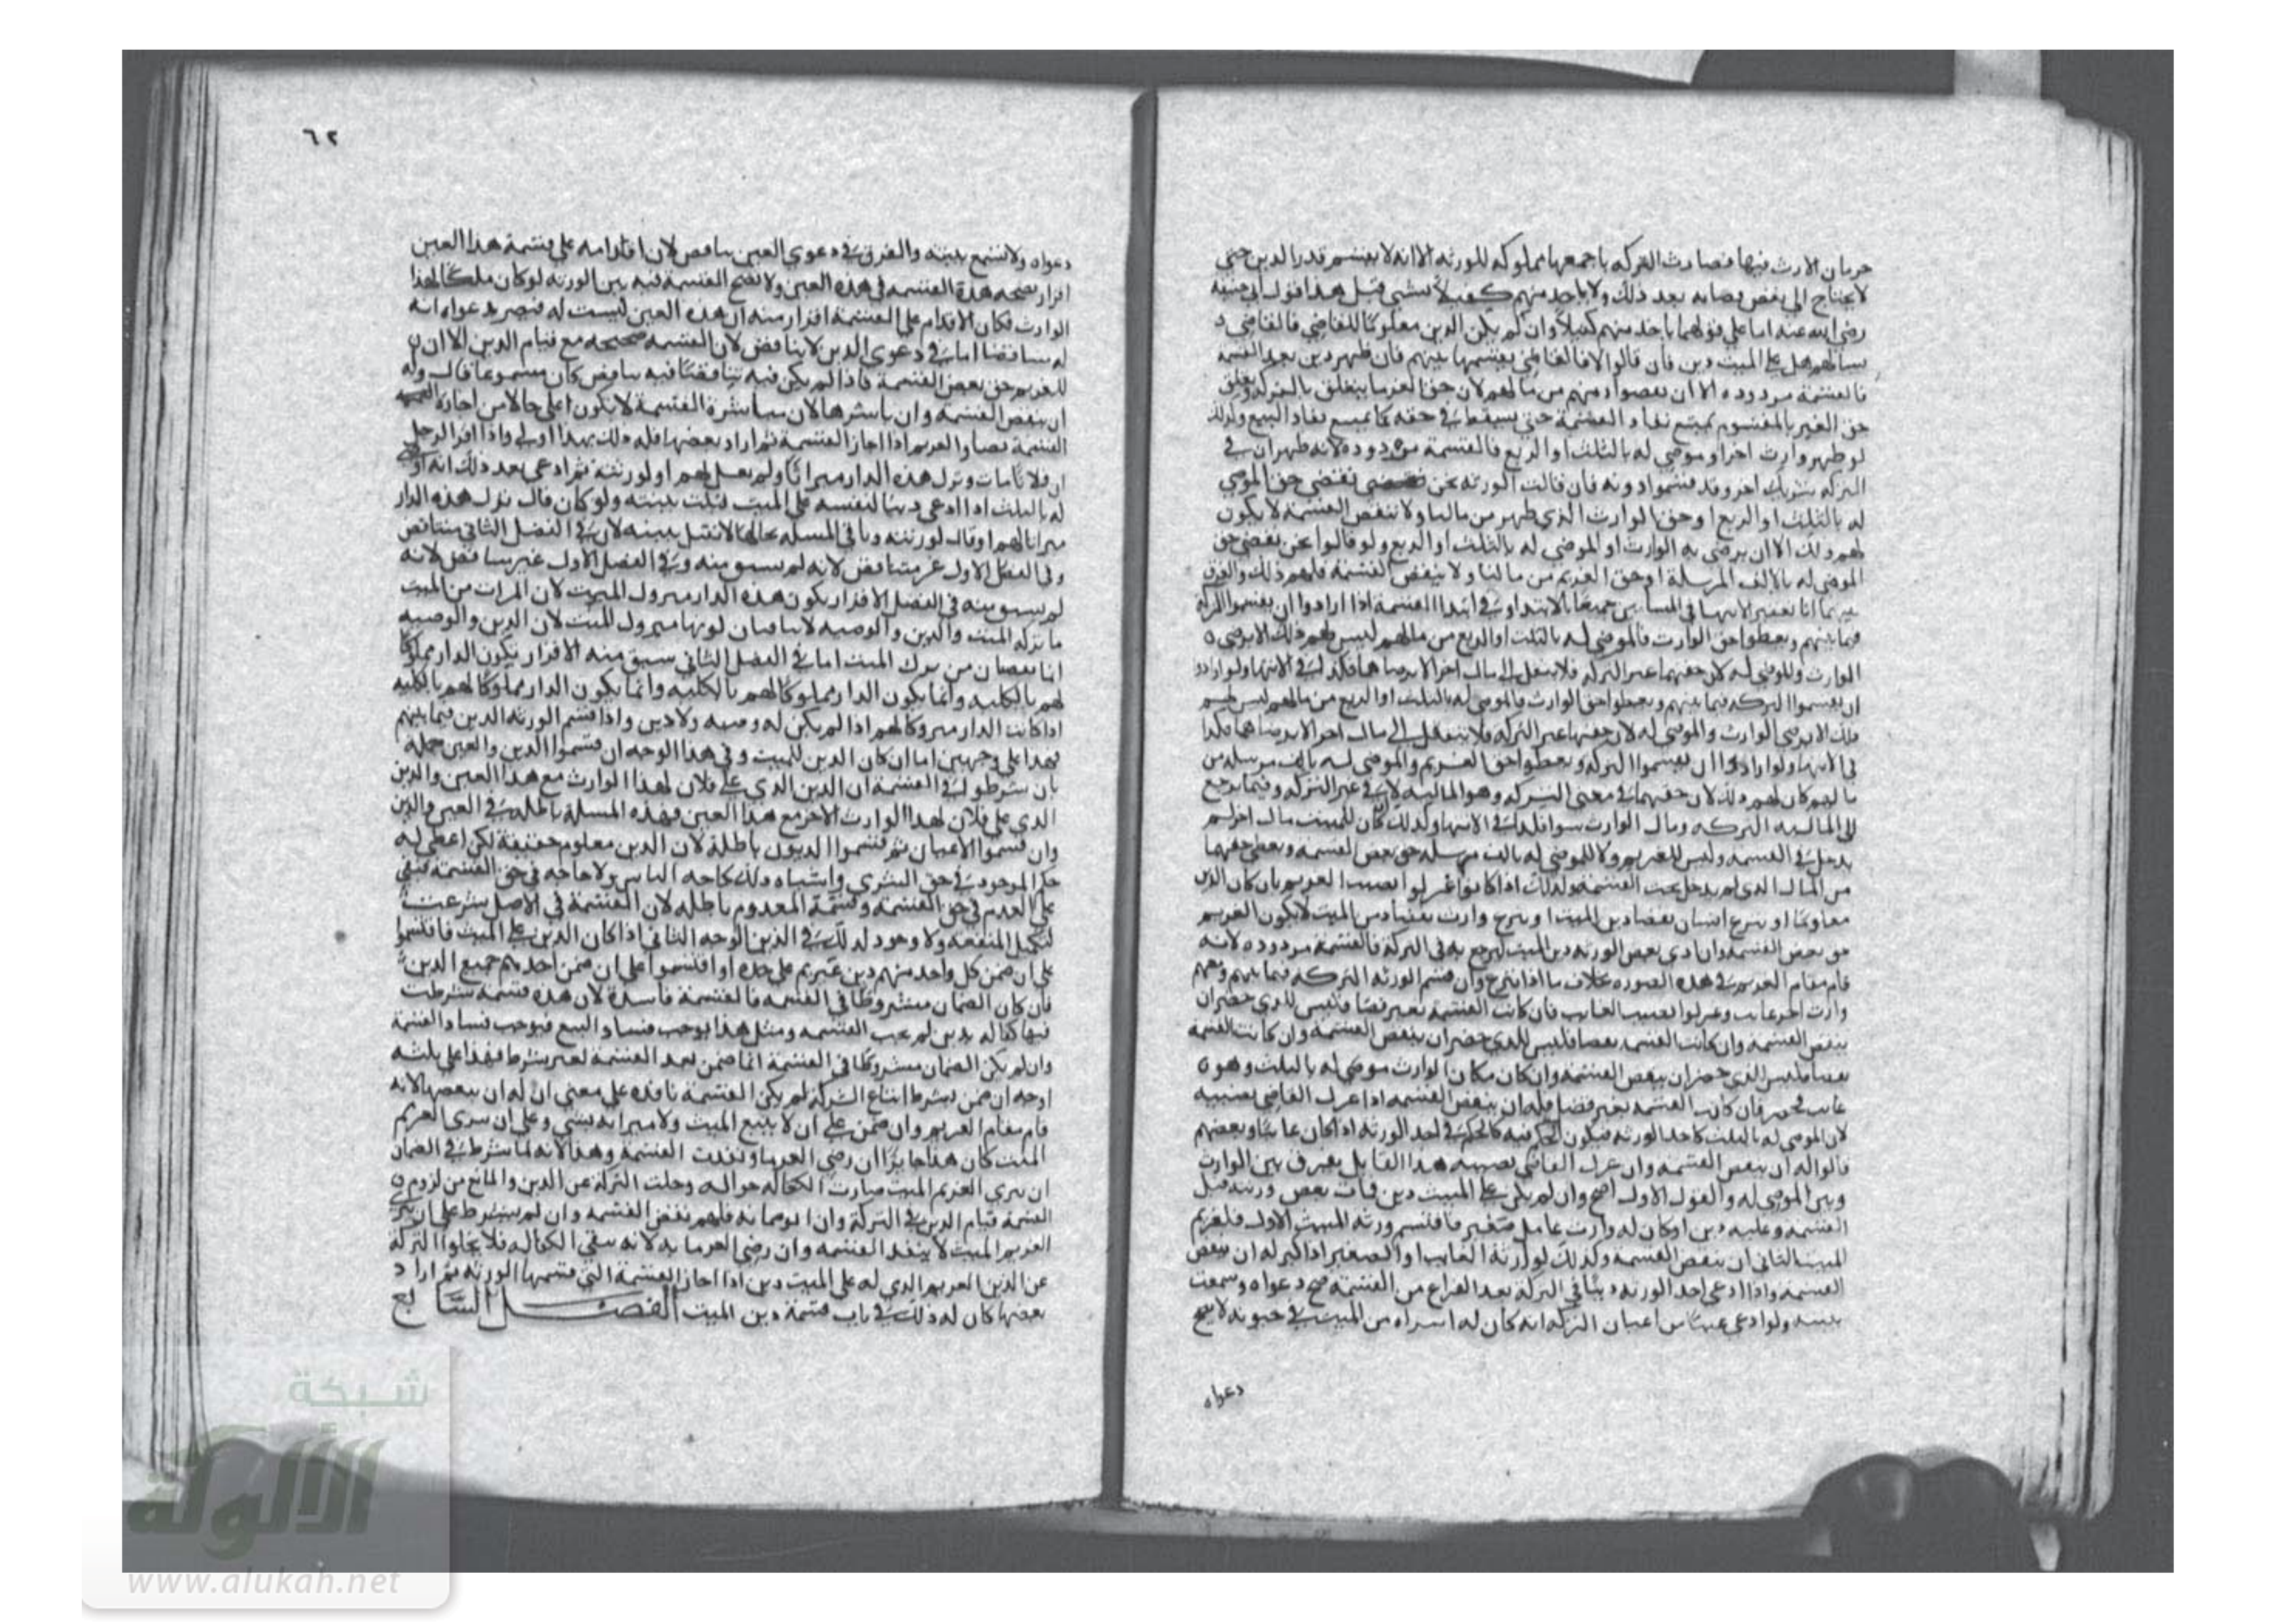 حرمان الارث فيها فصارت التركه باجمعها مملوكه للورثه الا انه لا يقسم قدر الدين حتى
لا يحتاج الى نقض قضايه بعد ذلك ولا ياخد منهم كفيلا بشى قبل هدا قول ابى حنيفه
رضى الله عنه اما على قولهما ياخد منهم كفيلا وان لم يكن الدين معلوما للقاضى فالقاضى
يسالهم هل على الميت دين فان قالوا لا فالقاضى يقسمها بينهم فان ظهر دين بعد القسمه
فالقسمه مردوده الا ان يقضوا دينهم من مالهم لان حق الغرما يتعلق بالتركه وتعلق
حق الغير بالمقسوم يمنع نفاد القسمه حتى يسقط فى حقه كما يمنع نفاد البيع وكدلك
لو ظهر وارث اخر او موصى له بالثلث او الربع فالقسمة مردوده لانه ظهر ان فى
التركه شريك اخر وقد قسموا دونه فان قالت الورثه نحن نقضى حق الموصى
له بالثلث او الربع او حق الوارث الذي ظهر من مالنا ولا ننقض القسمه لا يكون
لهم دلك الا ان يرضى به الوارث او الموصى له بالثلث او الربع ولو قالوا نحن نقضى حق
الموصى له بالالف المرسلة او حق الغريم من مالنا ولا ننقض القسمه فلهم ذلك والفرق
بينهما انا نعتبر الانتها فى المسالتين جميعا بالابتدا وفى ابتدا القسمة اذا ارادوا ان يقسموا التركه
فيما بينهم ويعطوا حق الوارث والموصى له بالثلث او الربع من مالهم ليس لهم ذلك الا برضى
الوارث والموصى له لان حقهما عين التركه فلا ينتقل الى مال اخر الا برضاهما فكدلك فى الانتها ولو ارادوا
ان يقسموا التركه فيما بينهم ويعطوا حق الوارث والموصى له بالثلث او الربع من مالهم ليس لهم
ذلك الا برضى الوارث والموصى له لان حقهما عين التركه فلا ينتقل الى مال اخر الا برضاهما فكدا
فى الانتها ولو ارادوا ان يقسموا التركه ويعطوا حق الغريم والموصى له بالف مرسله من
مالهم كان لهم دلك لان حقهما فى معنى التركه وهو الماليه لا فى عين التركه وفيما يرجع
الى الماليه التركه ومال الوارث سوا فكدلك فى الانتها وكدلك ان كان للميت مال اخر لم
يدخل فى القسمه وليس للغريم ولا للموصى له بالف مرسله حق نقض القسمه ويعطى حقهما
من المال الدى لم يدخل تحت القسمه
معلوما او تبرع انسان بقضا دين الميت او تبرع وارث بقضا دين الميت لا يكون للغريم
حق نقض القسمه وان ادى بعض الورثه دين الميت ليرجع به فى التركه فالقسمة مردوده لانه
قام مقام الغريم فى هذه الصوره بخلاف ما اذا تبرع وان قسم الورثه التركه فيما بينهم وفيهم
وارث اخر غايب وعزلوا نصيب الغايب فان كانت القسمة بغير قضا فليس للدى حضر ان
ينقض القسمه وان كانت القسمه بقضا فليس للدى حضر ان ينقض القسمه وان كانت القسمه
بقضا فليس للدى حضر ان ينقض القسمه وان كان مكان الوارث موصى له بالثلث وهو
غايب فحضر فان كانت القسمه بغير قضا فله ان ينقض القسمه اذا عزل القاضى نصيبه
لان الموصى له بالثلث كاحد الورثه فيكون الحكم فيه كالحكم فى احد الورثه اذا كان غايبا وبعضهم
قالوا له ان ينقض القسمه وان عزل القاضى نصيبه هدا القايل يفرق بين الوارث
وبين الموصى له والقول الاول اصح وان لم يكن على الميت دين فمات بعض ورثته قبل
القسمه وعليه دين او كان له وارث غايب او صغير فاقتسم ورثه الميت الاول فلغريم
الميت الثانى ان ينقض القسمه وكدلك لوارثه الغايب او الصغير اذا كبر له ان ينقض
القسمه واذا ادعى احد الورثه دينا فى التركه بعد الفراغ من القسمه صح دعواه وسمعت
بينته ولو ادعى عينا من اعيان التركه انه كان له اشتراه من الميت فى حيوته لا يصح
دعواه
٦٢
دعواه ولا تسمع بينته والفرق فى دعوي العين تناقض لان اقدامه على قسمة هدا العين
اقرار بصحه هذة القسمه فى هذه العين ولا تصح القسمة فيه بين الورثه لو كان ملكا لهدا
الوارث فكان الاقدام على القسمة اقرار منه ان هذه العين ليست له فيصير بدعواه انه
له مناقضا اما فى دعوى الدين لا يناقض لان القسمه صحيحه مع قيام الدين الا ان
للغريم حق نقض القسمة فاذا لم يكن فيه تناقض كان مسموعا قال وله
ان ينقض القسمه وان باشرها لان مباشرة القسمة لا تكون اعلى حالا من اجازه
القسمة نصا والغريم اذا اجاز القسمة ثم اراد نقضها فله ذلك فهدا اولى واذا اقر الرجل
ان فلانا مات وترك هذه الدار ميراثا ولم يقل لهم او لورثته ثم ادعى بعد ذلك انه اوصى
له بالثلث او ادعى دينا لنفسه على الميت قبلت بينته ولو كان قال ترك هذه الدار
ميراثا لهم او قال لورثته وباقى المسله بحالها لا تقبل بينه لان فى الفصل الثانى متناقض
وفى الفصل الاول غير متناقض لانه لم يسبق منه وفى الفصل الاول غير مناقض لانه
لم يسبق منه فى الفصل الاقرار بكون هذه الدار متروك الميت لان الميراث من الميت
ما تركه الميت والدين والوصيه لا ينافيان كونها متروك للميت لان الدين والوصيه
انما يقضيان من ترك الميت اما فى الفصل الثانى سبق منه الاقرار بكون الدار مملوكا
لهم بالكليه وانما يكون الدار مملوكا لهم بالكليه وانما يكون الدار مملوكا لهم بالكليه
اذا كانت الدار متروكا لهم اذا لم يكن له وصيه ولا دين واذا قسم الورثه الدين فيما بينهم
فهدا على وجهين اما ان كان الدين للميت وفى هدا الوجه ان قسموا الدين والعين جملة
بان شرطوا فى القسمة ان الدين الذي على فلان لهدا الوارث مع هدا العين والدين
الذى على فلان لهدا الوارث الاخر مع هدا العين فهذه المسلة باطله فى العين والدين
وان قسموا الاعيان ثم قسموا الديون باطلة لان الدين معلوم حقيقة لكن اعطى له
حكم الموجود فى حق الشرى واشباه ذلك لحاجه الناس ولا حاجه فى حق القسمة فبقى
على العدم فى حق القسمه وقسمة المعدوم باطله لان القسمة فى الاصل شرعت
لتكميل المنفعه ولا وجود لدلك فى الدين الوجه الثانى اذا كان الدين على الميت فاقتسموا
على ان ضمن كل واحد منهم دين غريم على حده او اقتسموا على ان ضمن احدهم جميع الدين
فان كان الضمان مشروطا فى القسمه فالقسمة فاسدة لان هذه قسمة شرطت
فيها كفاله بدين لم يجب القسمه ومثل هذا يوجب فساد البيع فيوجب فساد القسمة
وان لم يكن الضمان مشروطا فى القسمة انما ضمن بعد القسمة بغير شرط فهدا على ثلثه
اوجه ان ضمن بشرط اتباع التركة لم يكن القسمة نافذه على معنى ان له ان ينقضها لانه
قام مقام الغريم وان ضمن على ان لا يتبع الميت ولا ميراثه بشى وعلى ان يبرى الغريم
الميت كان هدا جايزا ان رضى الغرما ونفدت القسمه وهذا لانه لما شرط فى الضمان
ان يبري الغريم الميت صارت الكفاله حواله وخلت التركة عن الدين والمانع من لزوم
القسمة قيام الدين فى التركة وان ابوا ضمانه فلهم نقض القسمه وان لم يشترط على ان يبرى
الغريم الميت لا ينفد القسمه وان رضى الغرما به لانه بقى الكفاله فلا يخلوا التركة
عن الدين الغريم الدي له على الميت دين اذا اجاز القسمة التى قسمها الورثه ثم اراد
نقضها كان له ذلك فى باب قسمة دين الميت الفصل السابع
شبكة
الألوكة
www.alukah.net